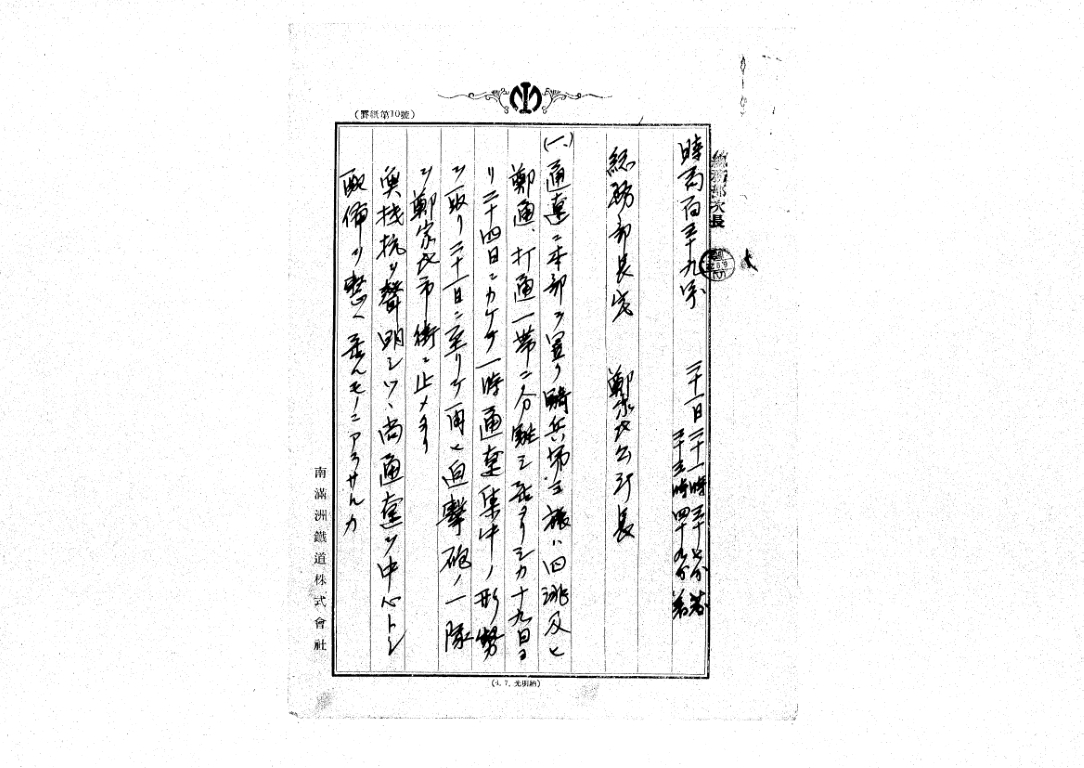 (罫紙第10號)
總務部次長
時局百三十九号
二十一日 二十一時三十七分 發
二十三時四十九分 着
総務部長宛 鄭家屯公所長
(一、)通遼ニ本部ヲ置ク騎兵第三旅ハ四洮及ヒ
鄭通、打通一帯ニ分離シ居タリシカ十九日ヨ
リ二十四日ニカケテ一時通遼集中ノ形勢
ヲ取リ二十一日ニ至リテ再ヒ迫撃砲ノ一隊
ヲ鄭家屯市街ニ止メタリ
無抵抗ヲ聲明シツヽ尚通遼ヲ中心トシ
戰備ヲ整ヘ居ルモノニアラサルカ
南滿洲鐵道株式會社
(4. 7. 光明納)